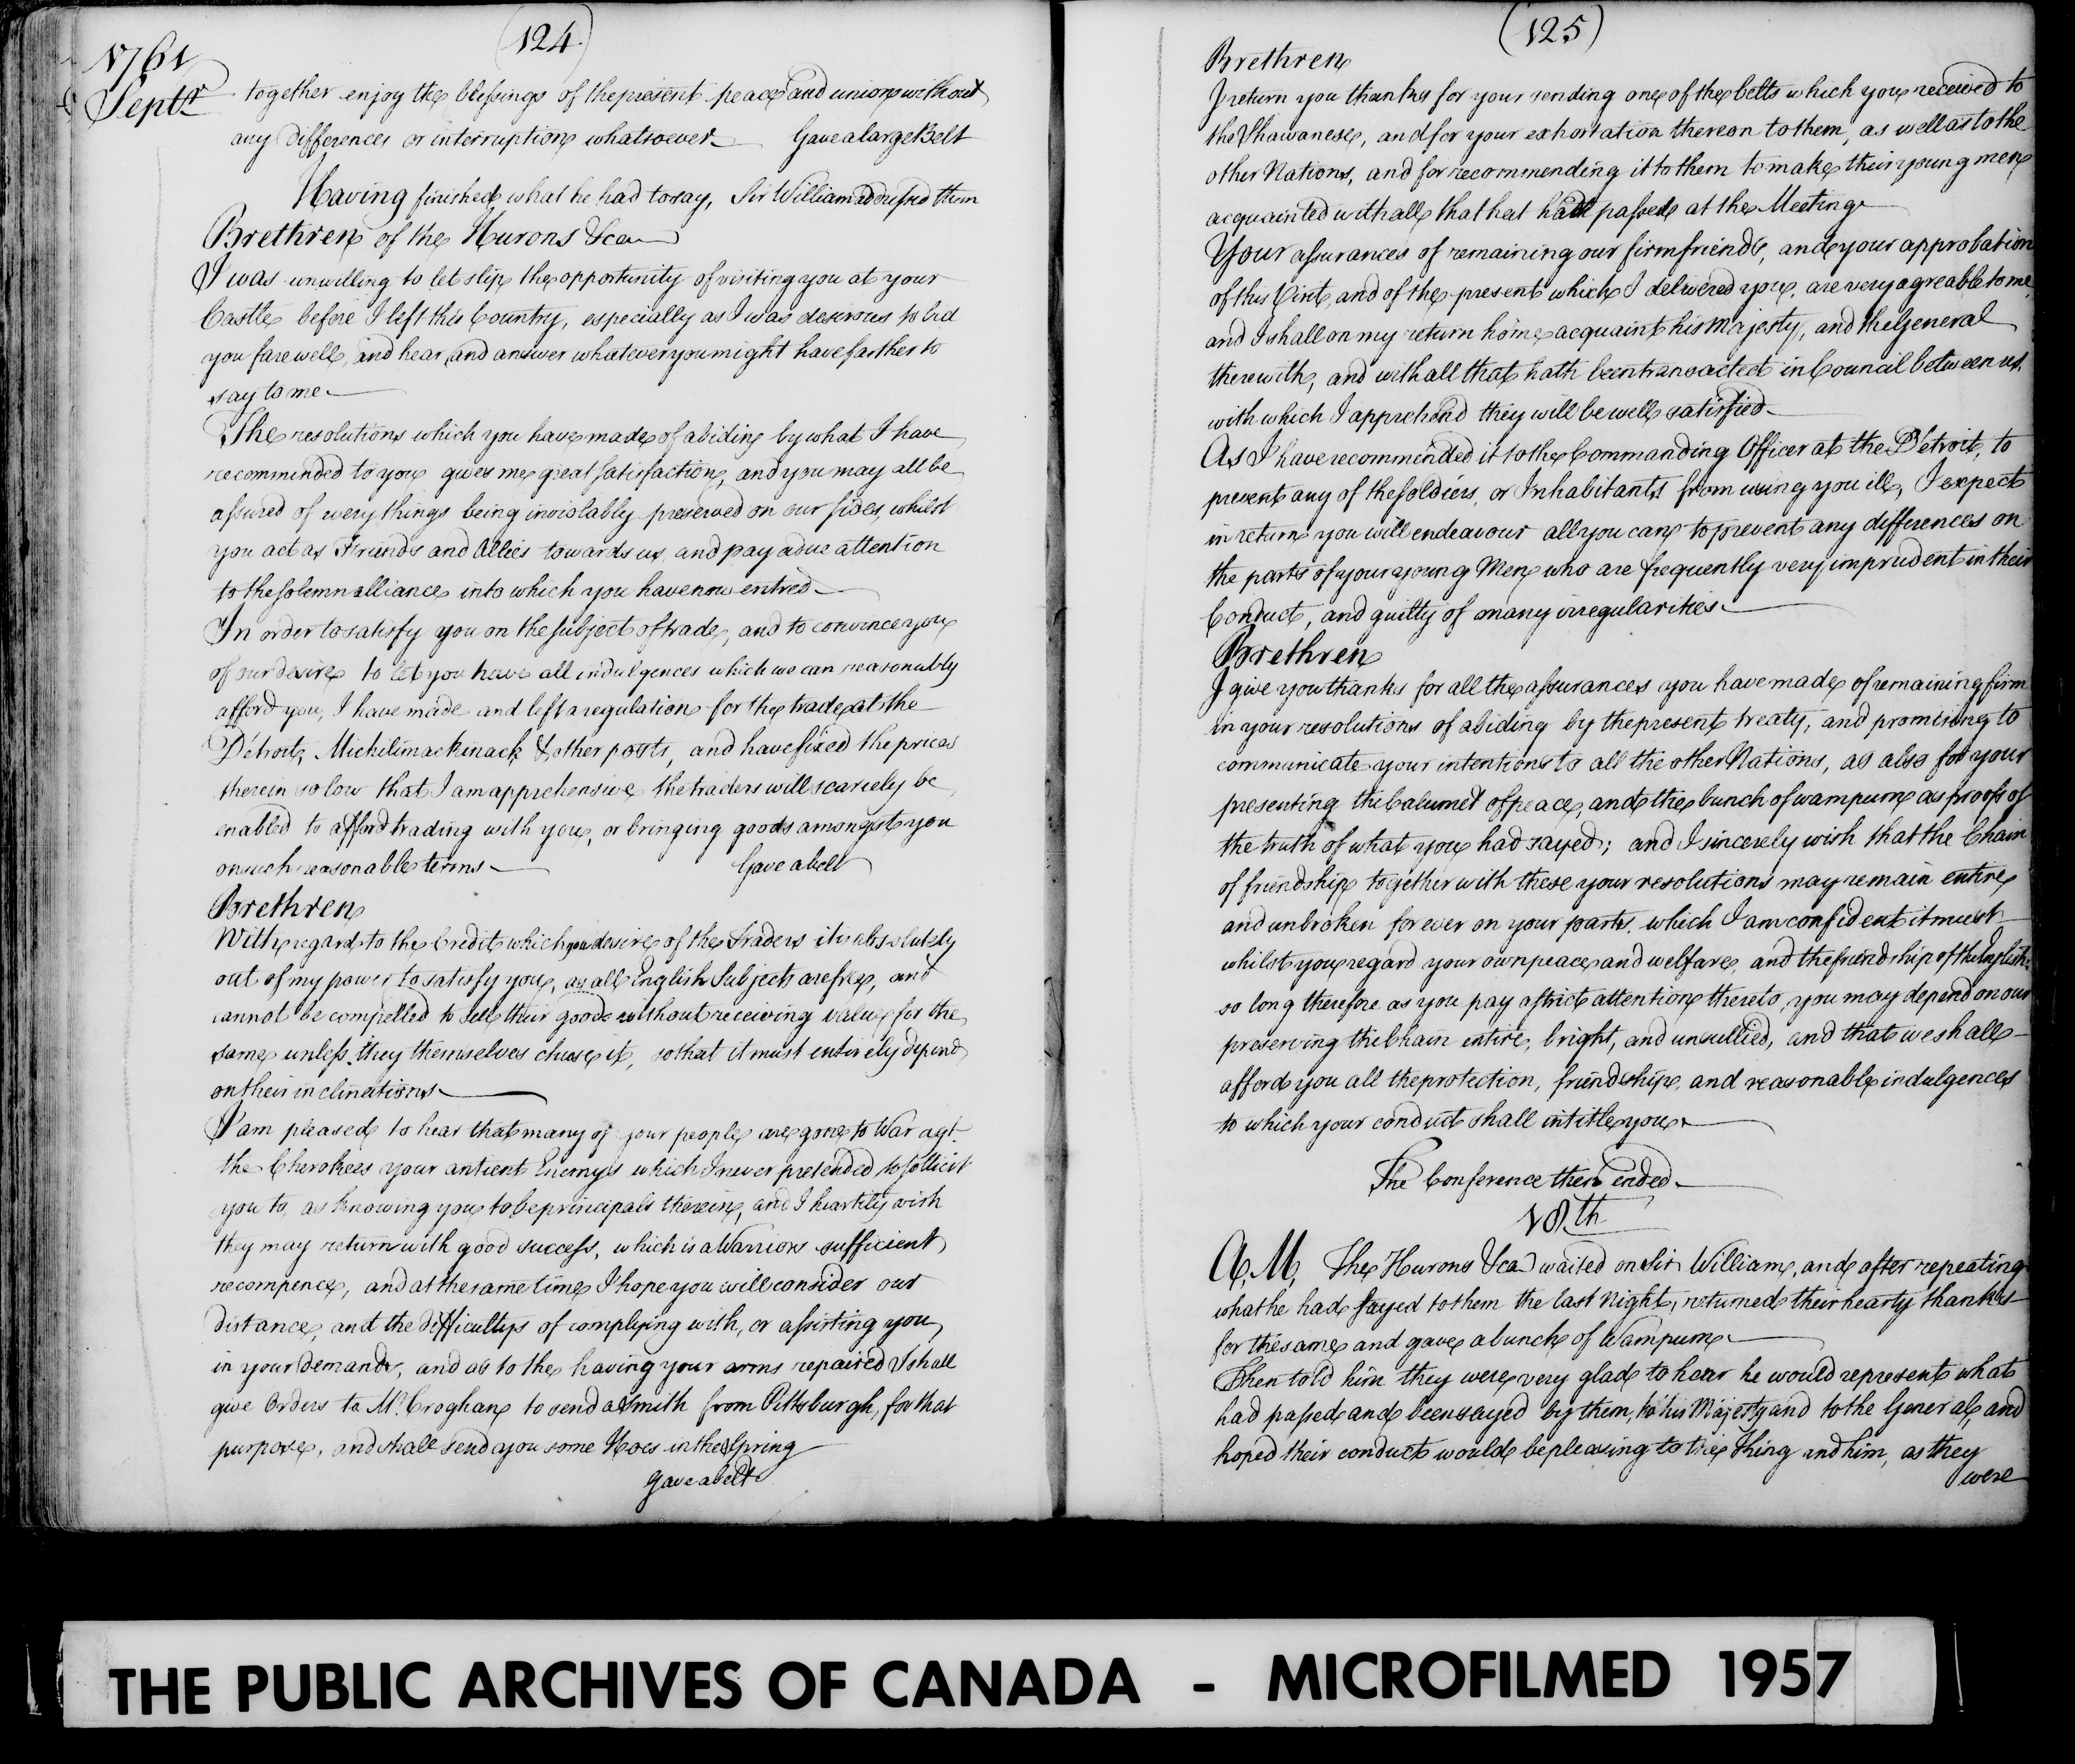 (124)
1761
Septr
together enjoy the blessings of the present peace and union without
any differences or interruption whatsoever Gave a large Belt
Having finished what he had to say, Sir William addressed them
Brethren of the Hurons &ca
I was unwilling to let slip the opportunity of visiting you at your
Castle before I left this Country, especially as I was desirous to bid
you farewell, and hear and answer whatever you might have farther to
say to me
The resolutions which you have made of abiding by what I have
recommended to you gives me great satisfaction, and you may all be
assured of every things being inviolably preserved on our sides, whilst
you act as Friends and Allies towards us, and pay a due attention
to the solemn alliance into which you have now entred
In order to satisfy you on the subject of trade, and to convince you
of our desire to let you have all indulgences which we can reasonably
afford you, I have made and left a regulation for the trade at the
Détroit, Michilimackinack & other posts, and have fixed the prices
therein so low that I am apprehensive the traders will scarcely be
enabled to afford trading with you, or bringing goods amongst you
on such reasonable terms Gave a belt
Brethren
With regard to the Credit which you desire of the Traders it is absolutely
out of my power to satisfy you, as all English Subjects are free, and
cannot be compelled to sell their goods without receiving value for the
same unless they themselves chuse it, so that it must entirely depend
on their inclinations
I am pleased to hear that many of your people are gone to War agt.
the Cherokees your antient Enemys which I never pretended to sollicit
you to, as knowing you to be principals therein, and I heartily wish
they may return with good success, which is a Warriors sufficient
recompence, and at the same time I hope you will consider our
distance, and the difficultys of complying with, or assisting you
in your demands, and as to the having your arms repaired I shall
give Orders to Mr. Croghan to send a Smith from Pittsburgh, for that
purpose, and shall send you some Hoes in the Spring
gave a belt
(125)
Brethren
I return you thanks for your sending one of the belts which you received to
the Shawanese, and for your exhortation thereon to them, as well as to the
other Nations, and for recommending it to them to make their young men
acquainted with all that hat hath passed at the Meeting
Your assurances of remaining our firm friends, and your approbation
of this Visit, and of the present which I delivered you, are very agreable to me,
and I shall on my return home acquaint his Majesty, and the General
therewith, and with all that hath been transacted in Council between us,
with which I apprehend they will be well satisfied
As I have recommended it to the Commanding Officer at the Détroit, to
prevent any of the soldiers, or Inhabitants from using you ill, I expect
in return you will endeavour all you can to prevent any differences on
the parts of your young Men who are frequently very imprudent in their
Conduct, and guilty of many irregularities
Brethren
I give you thanks for all the assurances you have made of remaining firm
in your resolutions of abiding by the present treaty, and promising to
communicate your intentions to all the other Nations, as also for your
presenting the Calumet of peace, and the bunch of wampum as proofs of
the truth of what you had sayed; and I sincerely wish that the Chain
of friendship together with these your resolutions may remain entire
and unbroken for ever on your parts, which I am confident it must
whilst you regard your own peace and welfare, and the friendship of the English:
so long therefore as you pay a strict attention thereto, you may depend on our
preserving the Chain entire, bright, and unsullied, and that we shall
afford you all the protection, friendship, and reasonable indulgences
to which your conduct shall intitle you
The Conference then ended
18th
A, M, The Hurons &ca waited on Sir William, and after repeating
what he had sayed to them the last Night, returned their hearty thanks
for the same and gave a bunch of Wampum
Then told him they were very glad to hear he would represent what
had passed and been sayed by them, to his Majesty and to the General, and
hoped their conduct would be pleasing to the King and him, as they
were
THE PUBLIC ARCHIVES OF CANADA - MICROFILMED 1957